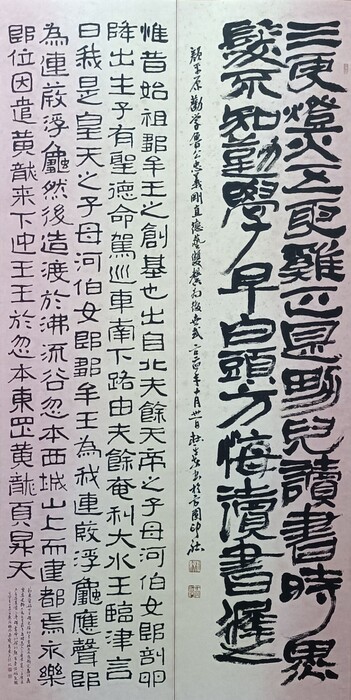 三更燈火五更雞正是男兒讀書時黑
髮不知勤學早白頭方悔讀書遲
顏平原勸學魯公忠義剛直德藝雙馨為後世式
惟昔始祖鄒牟王之創基也出自北夫餘天帝之子母河伯女郎剖卵
降出生子有聖德命駕巡車南下路由夫餘奄利大水王臨津言
曰我是皇天之子母河伯女郎鄒牟王為我連葭浮龜應聲即
為連葭浮龜然後造渡於沸流谷忽本西城山上而建都焉永樂
即位因遣黃龍來下迎王王於忽本東罡黃龍頁昇天